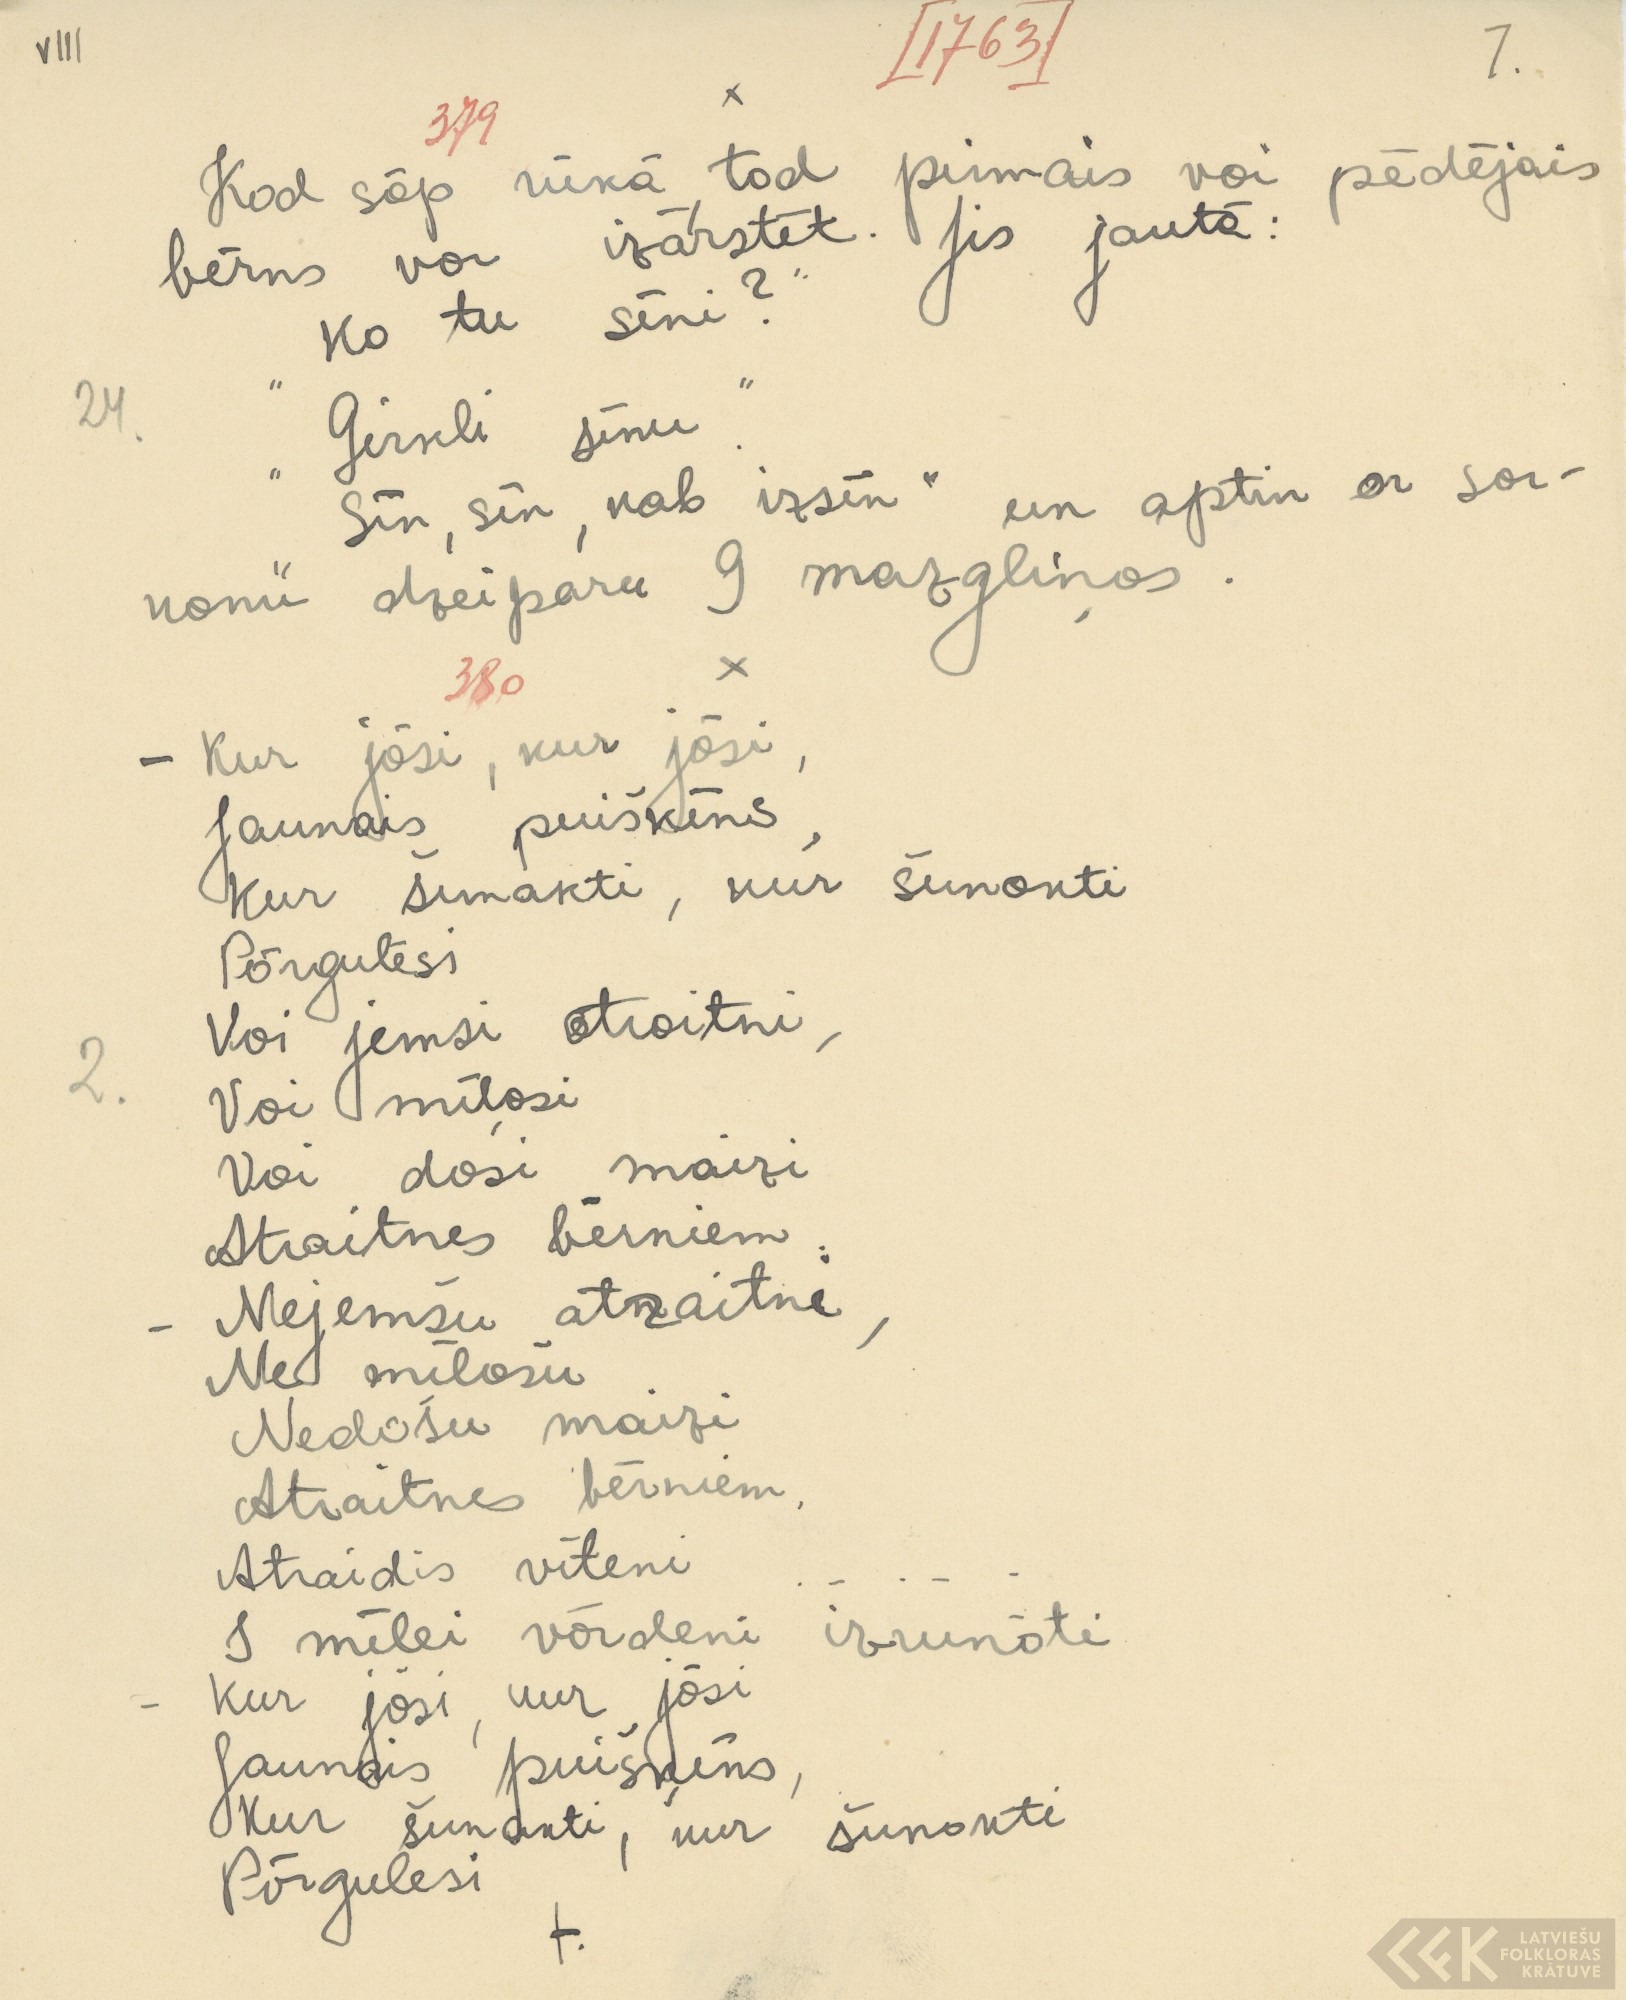 VIII
[1763]
7.
379
x
Kod sōp rūkā, tod pirmais voi pēdējais
bērns vor izārstēt. Jis jautā:
Ko tu sēni?"
24.
" Girkli sēnu".
" Sēn, sēn, kab izsēn" un aptin or sor-
konū dzeiparu 9 mazgliņos.
380
x
- Kur jōsi, kur jōsi,
Jaunais puiškēns,
Kur šunakti, kur šunokti
Pōrgulēsi
Voi jemsi otroitni,
2.
Voi mīļosi
Voi dosi maizi
Atraitnes bērniem:
- Nejemšu atraitni,
Ne mīlošu
Nedošu maizi
Atraitnes bērniem.
Atraidis vīteni
I mīlei vōrdeni izrunōti
- Kur jōsi, kur jōsi
Jaunais puišķēns,
Kur šunakti, kur šunokti
Pōrgulesi
t.
LATVIEŠU
FOLKLORAS
KRĀTUVE